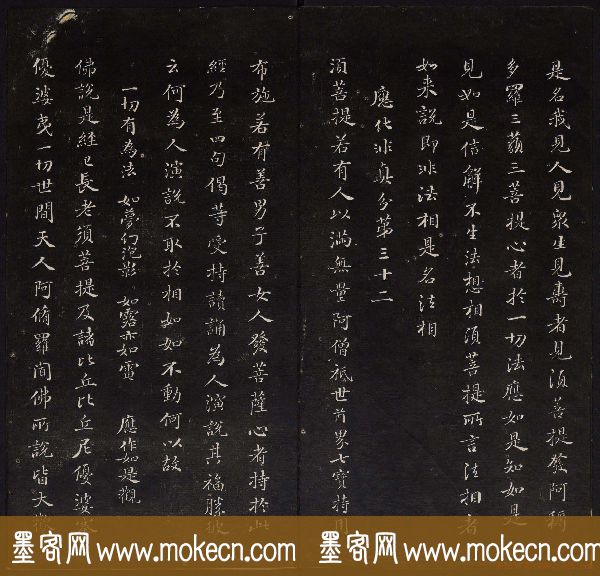 是名我見人見衆生見壽者見須菩提發阿耨
多羅三藐三菩提心者於一切法應如是知如是
見如是信解不生法想相須菩提所言法相者
如来說即非法相是名法相
應化非真分第三十二
須菩提若有人以滿無量阿僧祇世界七寶持用
布施若有善男子善女人發菩薩心者持於此
經乃至四句偈等受持讀誦為人演說其福勝彼
云何為人演說不取於相如如不動何以故
一切有為法 如夢幻泡影 如露亦如電 應作如是觀
佛說是經已長老須菩提及諸比丘比丘尼優婆塞
優婆夷一切世間天人阿脩羅聞佛所說皆大歡
墨客网 www.mokecn.com 墨客网 www.mokecn.com